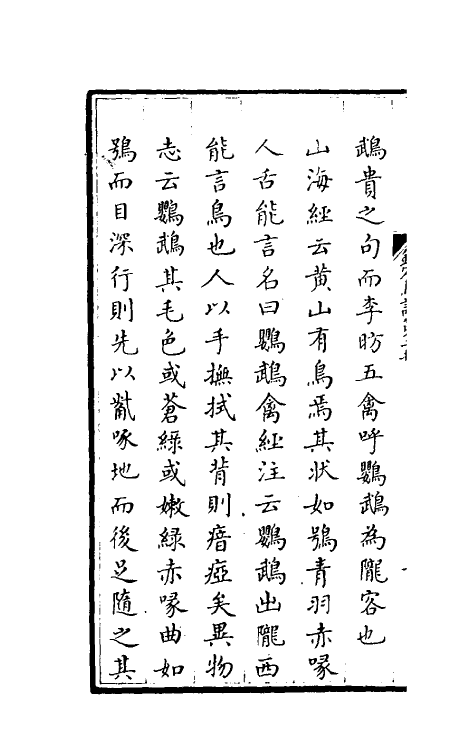 鵡貴之句而李昉五禽呼鸚鵡為隴客也
山海經云黃山有鳥焉其狀如鴞青羽赤喙
人舌能言名曰鸚鵡禽經注云鸚鵡出隴西
能言鳥也人以手撫拭其背則瘖瘂矣異物
志云鸚鵡其毛色或蒼綠或嫩綠赤喙曲如
鴞而目深行則先以觜啄地而後足隨之其